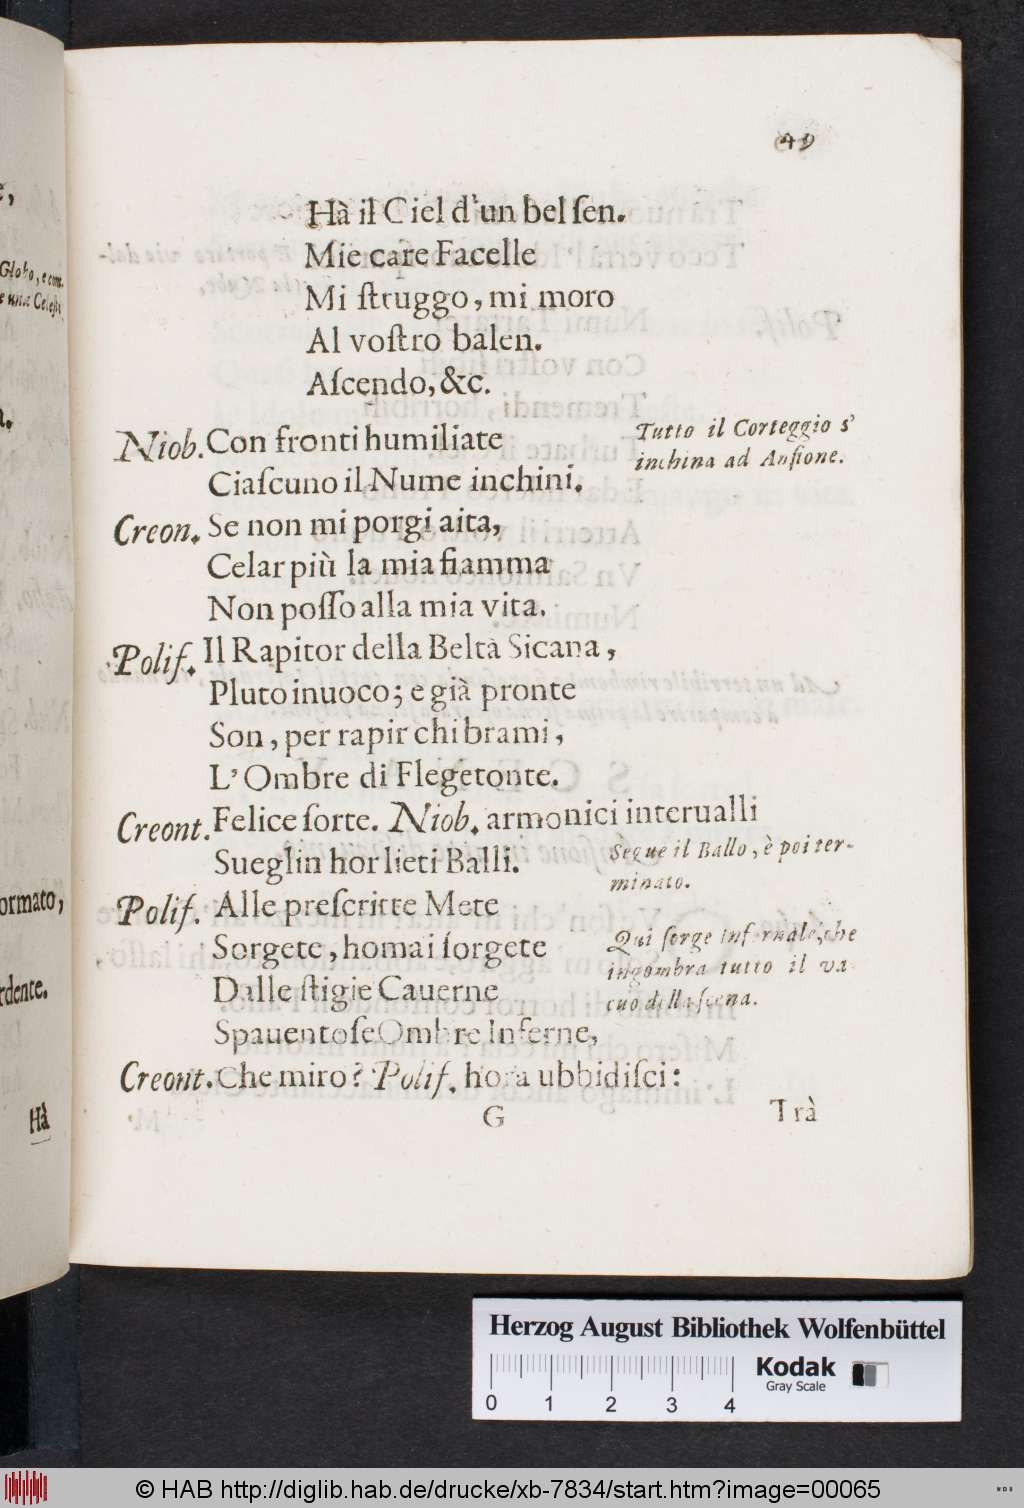 49
Hà il Ciel d'un bel ſen.
Mie care Facelle
Mi ſtruggo, mi moro
Al voſtro balen.
Aſcendo, &c.
Niob. Con fronti humiliate
Ciaſcuno il Nume inchini.
Tutto il Corteggio s'
inchina ad Anfione.
Creon. Se non mi porgi aita,
Celar più la mia fiamma
Non poſſo alla mia vita.
Polif. Il Rapitor della Beltà Sicana,
Pluto inuoco; e già pronte
Son, per rapir chi brami,
L'Ombre di Flegetonte.
Creont. Felice ſorte. Niob. armonici interualli
Sueglin hor lieti Balli.
Segue il Ballo, è poi ter-
minato.
Polif. Alle preſcritte Mete
Sorgete, homai ſorgete
Dalle ſtigie Cauerne
Spauentoſe Ombre Inferne,
Qui ſorge Infernale, che
ingombra tutto il va
cuo della ſcena.
Creont. Che miro? Polif. hora ubbidiſci:
G
Trà
Globo, e com-
e una Celeſte
ormato,
rdente.
Hà
Herzog August Bibliothek Wolfenbüttel
0 1 2 3 4
Kodak
Gray Scale
© HAB http://diglib.hab.de/drucke/xb-7834/start.htm?image=00065